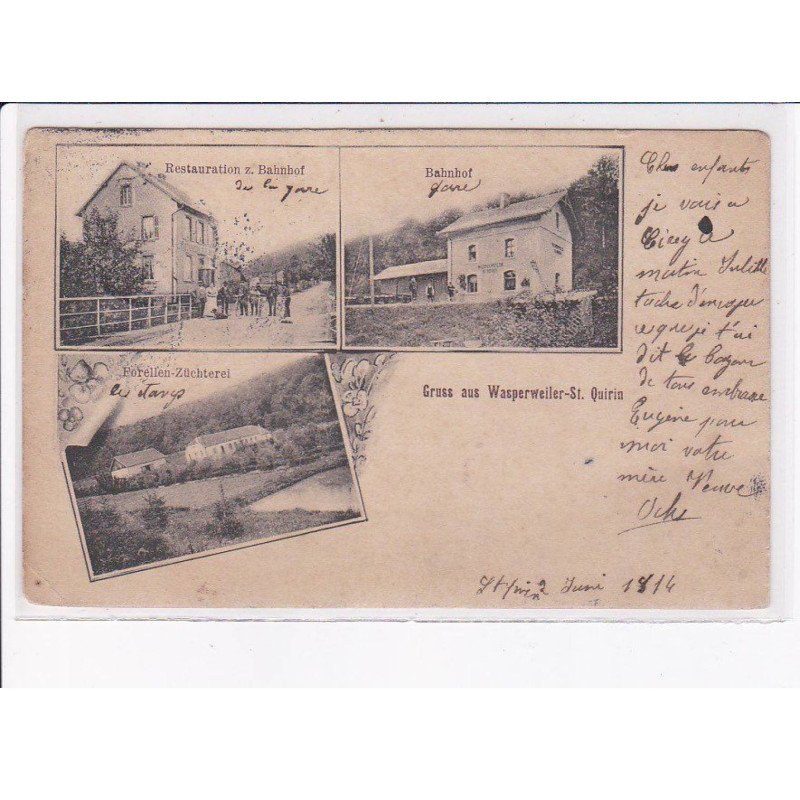 Restauration z. Bahnhof
de la gare
Bahnhof
gare
Forellen-Züchterei
les étangs
Gruss aus Wasperweiler-St. Quirin
enfants
je vais a
Cirey
matin Juliette
que je t'ai
dit
de tous embrasse
Eugène pour
moi votre
mère Veuve
Ochs
St Quirin 2 Juni 1914